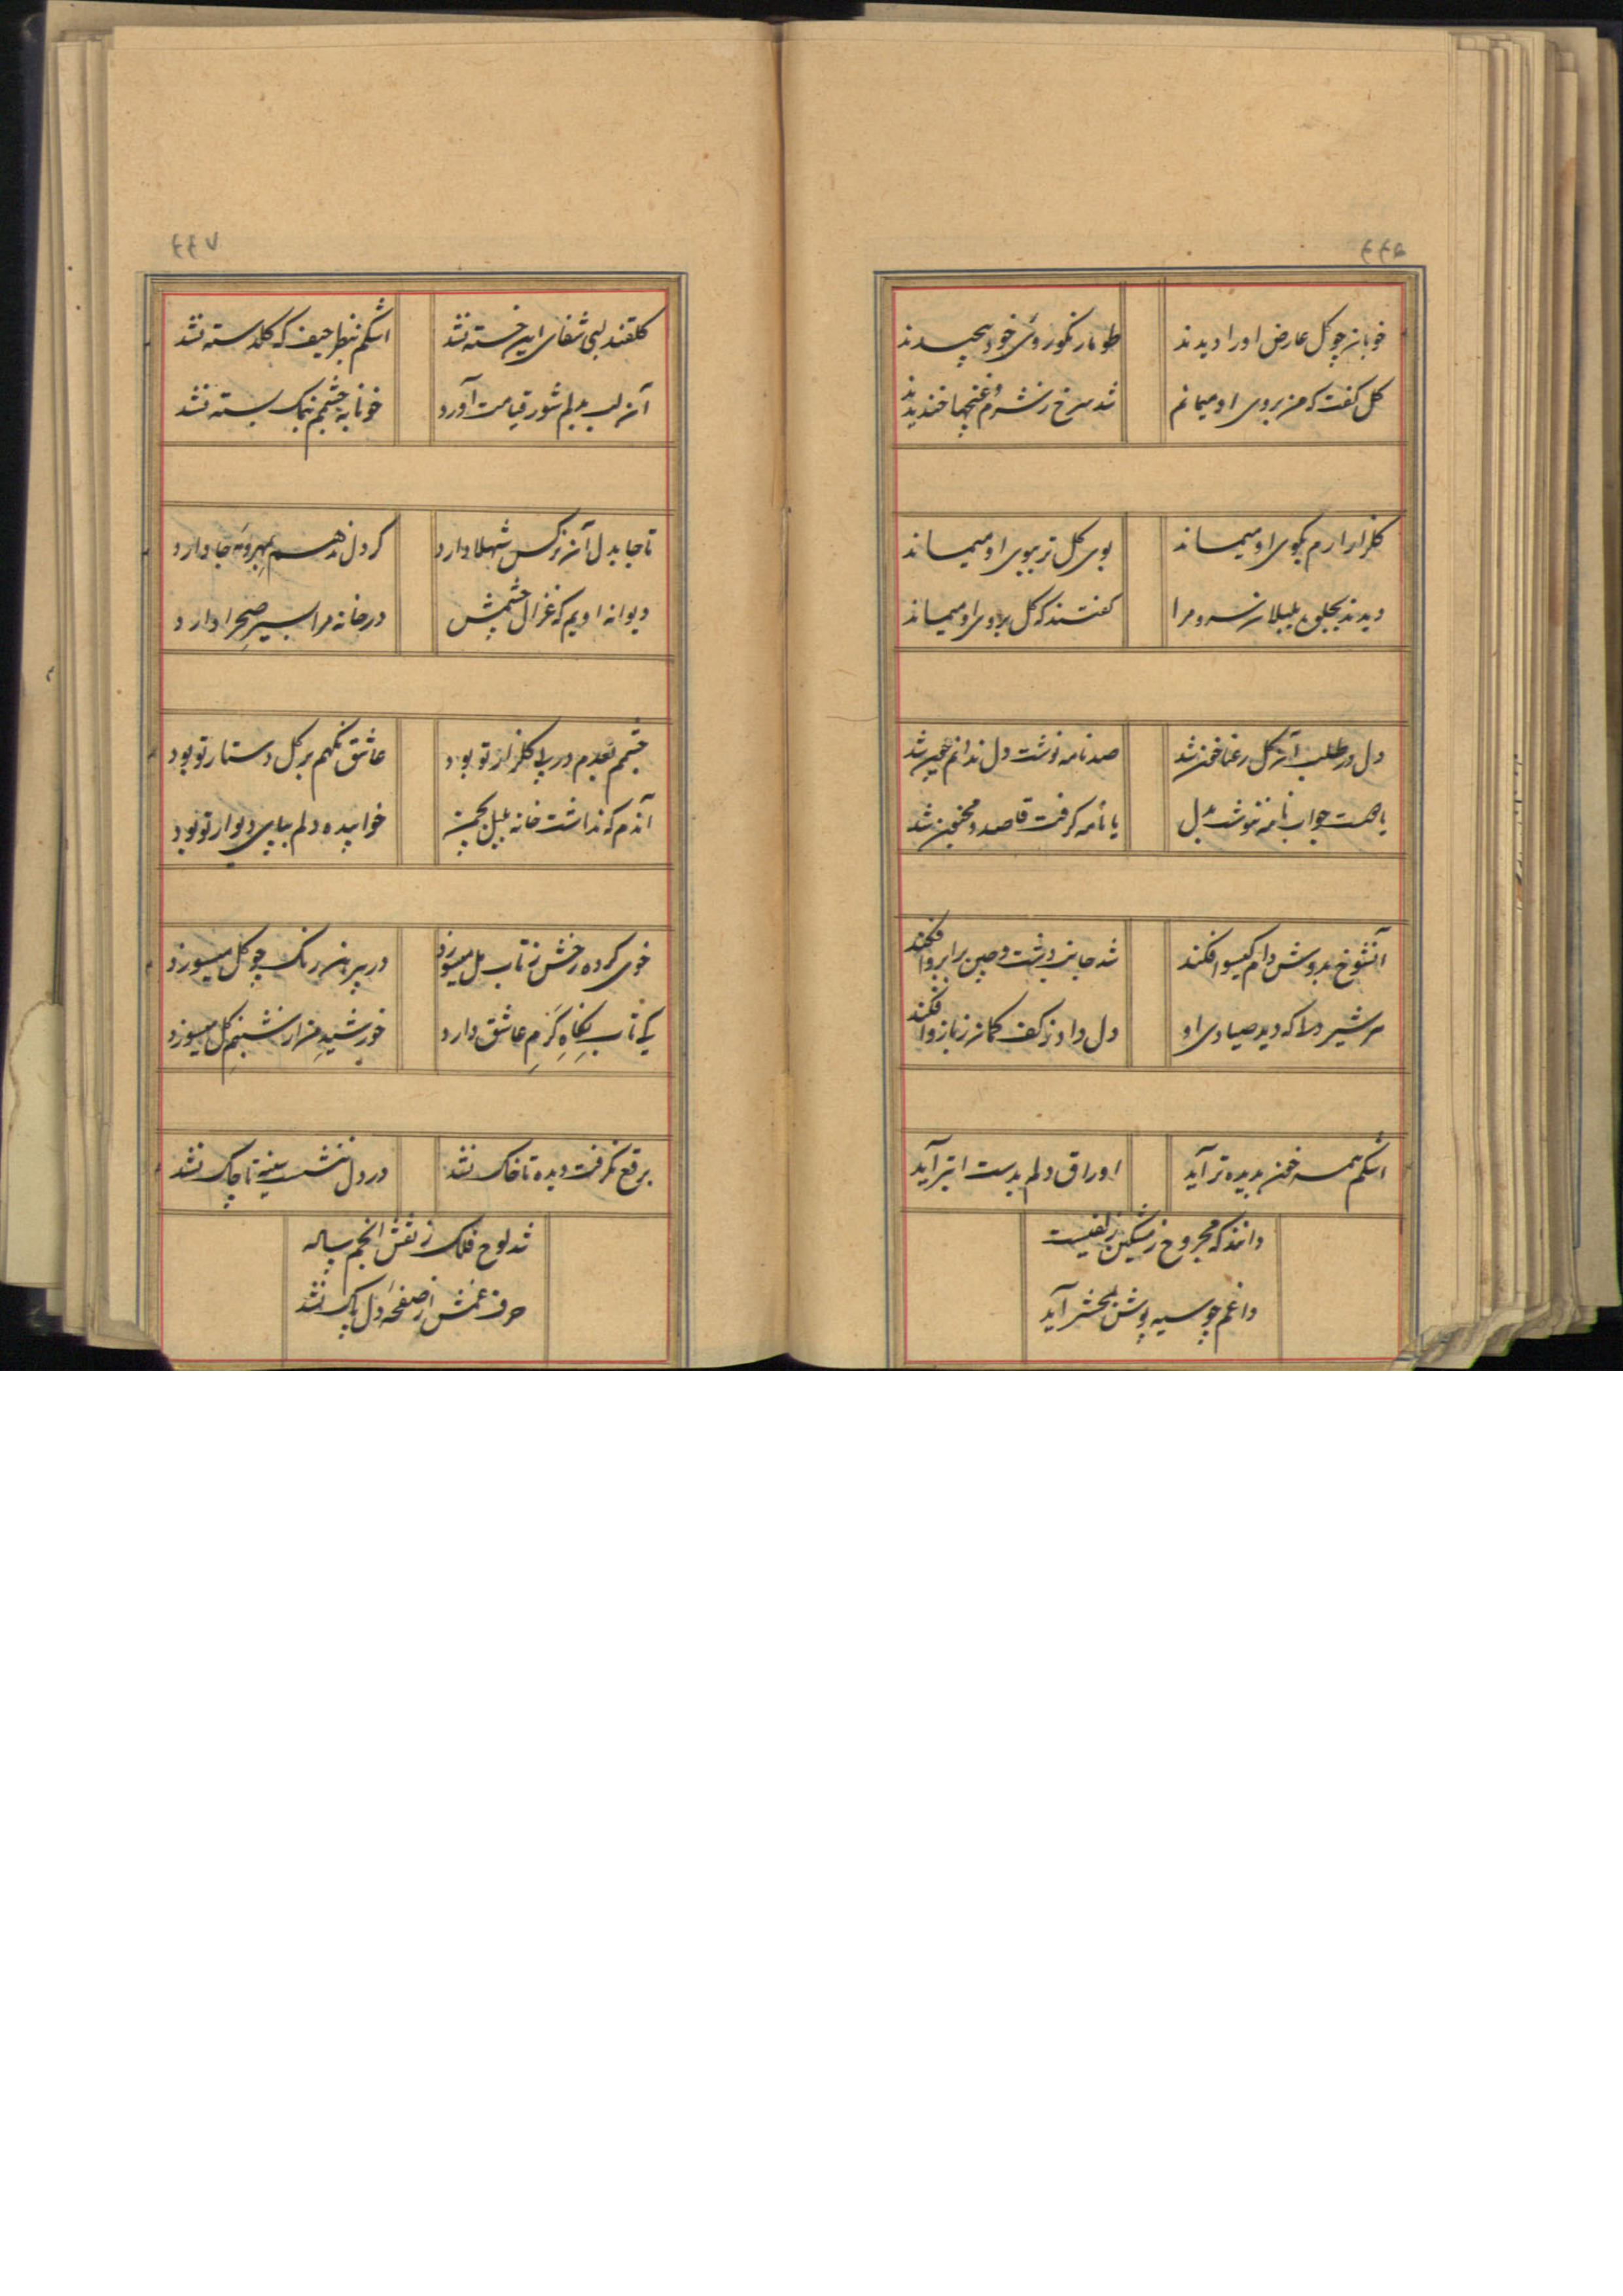 ۶۶۵
خوبان چو گل عارض او را دیدند
طومار نکوروئی خود پیچیدند
گل گفت که من بروی او میمانم
شد سرخ ز شرم و غنچها خندیدند
گلزار ارم بکوی او میماند
بوی گل تر ببوی او میماند
دیدند بجلوه بلبلان سرو مرا
گفتند که گل بروی او میماند
دل در طلب آن گل رعنا خون شد
صد نامه نوشت دل ندانم چون شد
یا هست جواب نامه ننوشت بدل
یا نامه گرفت قاصد و مجنون شد
آنشوخ بدوش دام گیسو افکند
شد جانب دشت و چین بر ابرو افکند
هر شیر دلا که دید صیادی او
دل داد ز کف کمان ز بازو افکند
اشکم همه خون بدیده تر آید
اوراق دلم بدست ابتر آید
دانند که مجروح ز مشکین زلفیست
داغم چو سیه پوش بمحشر آید
۶۶۷
گلقند لبی شفای این خسته نشد
اشکم بنظر حیف که گلدسته نشد
آن لب بدلم شور قیامت آورد
خونابه چشمم بنمک بسته نشد
تا جا بدل آن نرگس شهلا دارد
گر دل ندهم بمهر و مه جا دارد
دیوانه اویم که غزال چشمش
در خانه مرا بسیر صحرا دارد
چشمم بعدم در پی گلزار تو بود
عاشق نگهم بر گل دستار تو بود
آندم که نداشت خانه بلبل بچمن
خوابیده دلم بپای دیوار تو بود
خوی کرده رخش ز تاب مل میسوزد
در پیرهن رنگ چو گل میسوزد
کی تاب نگاه گرم عاشق دارد
خورشید من از شبنم گل میسوزد
برقع نگرفت دیده تا خاک نشد
در دل ننشست سینه تا چاک نشد
شد لوح فلک ز نقش انجم ساده
حرف غمش از صفحه دل پاک نشد